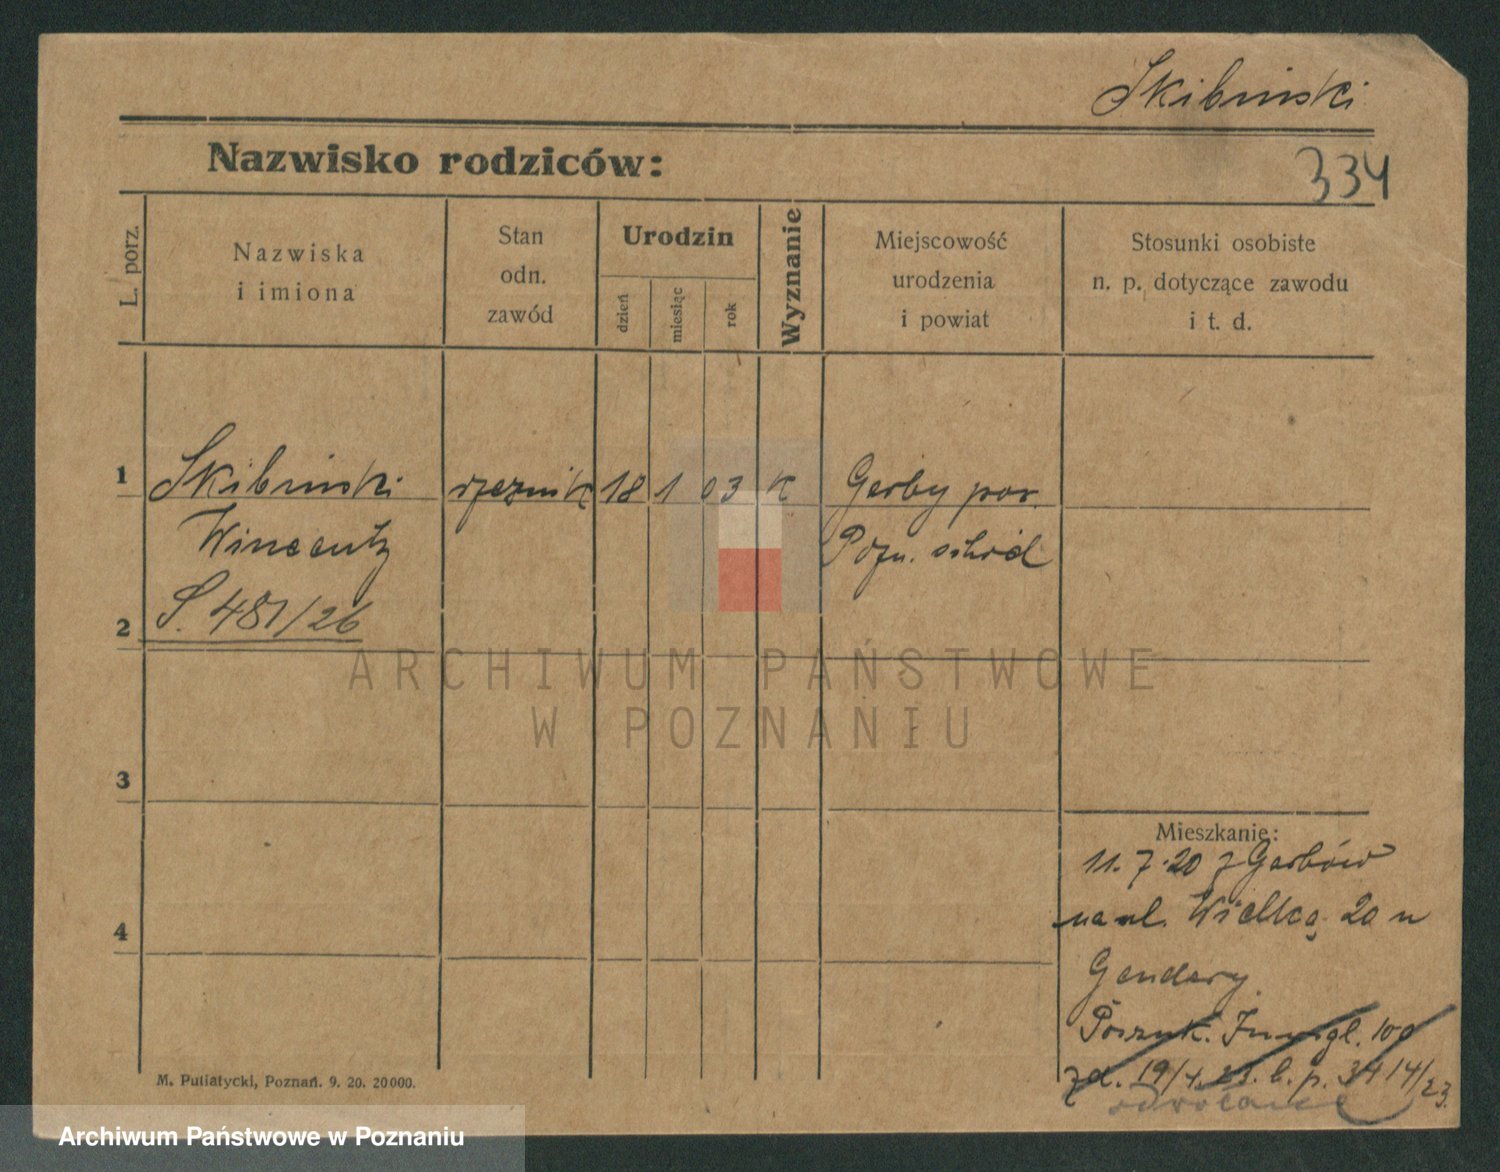 Skibinski
Nazwisko rodziców:
334
L. porz.
Nazwiska
i imiona
Stan
odn.
zawód
Urodzin
dzień
miesiąc
rok
Wyznanie
Miejscowość
urodzenia
i powiat
Stosunki osobiste
n. p. dotyczące zawodu
i t. d.
1
Skibinski
rzeznik
18
1
03
K
Gerby pow.
Wincenty
Pozn. wschód
2
S. 481/26
ARCHIWUM PAŃSTWOWE
W POZNANIU
3
Mieszkanie:
11. 7. 20 z Garbów
na ul. Wielką 20 u
4
Gendery
Poszuk.
zd. 19/4. 23. b. p. 3414/23.
odwołane
M. Putiatycki, Poznań. 9. 20. 20000.
Archiwum Państwowe w Poznaniu